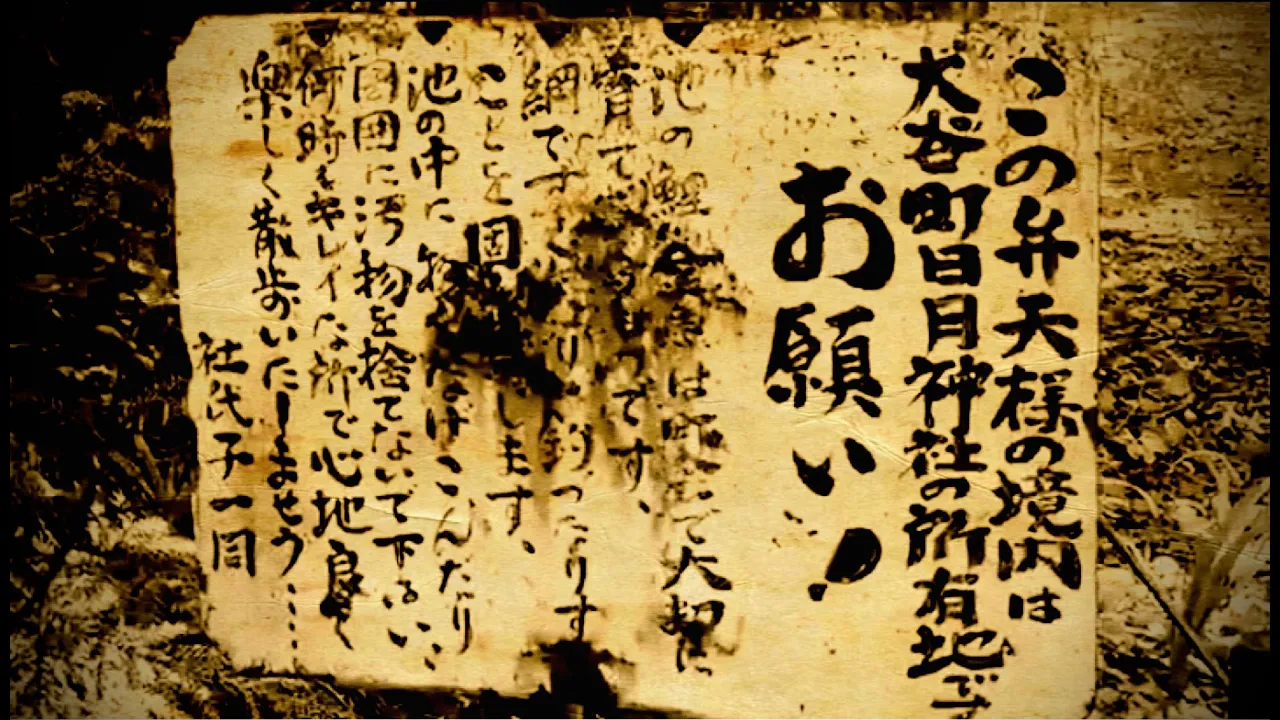 この弁天様の境内は
大谷町日月神社の所有地です
お願い!
池の鯉、金魚は として大切に
育て です、
綱です り 釣ったりす
ことを固 します、
池の中に物 なげこんだり
周囲に汚物を捨てないで下さい、
何時もキレイな所で心地良く
楽しく散歩おいたしませう....
社氏子一同